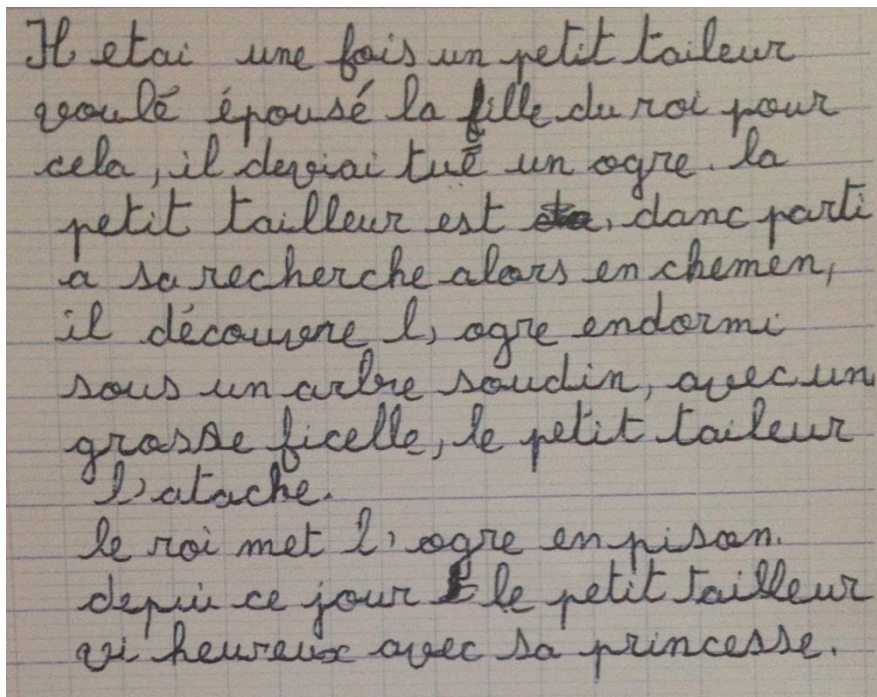 Il etai une fois un petit taileur
voulé épousé la fille du roi pour
cela, il deviai tué un ogre. la
petit tailleur est, danc parti
a sa recherche alors en chemen,
il découvre l, ogre endormi
sous un arbre soudin, avec un
grosse ficelle, le petit taileur
l'atache.
le roi met l' ogre en pison.
depui ce jour le petit tailleur
vi heureux avec sa princesse.